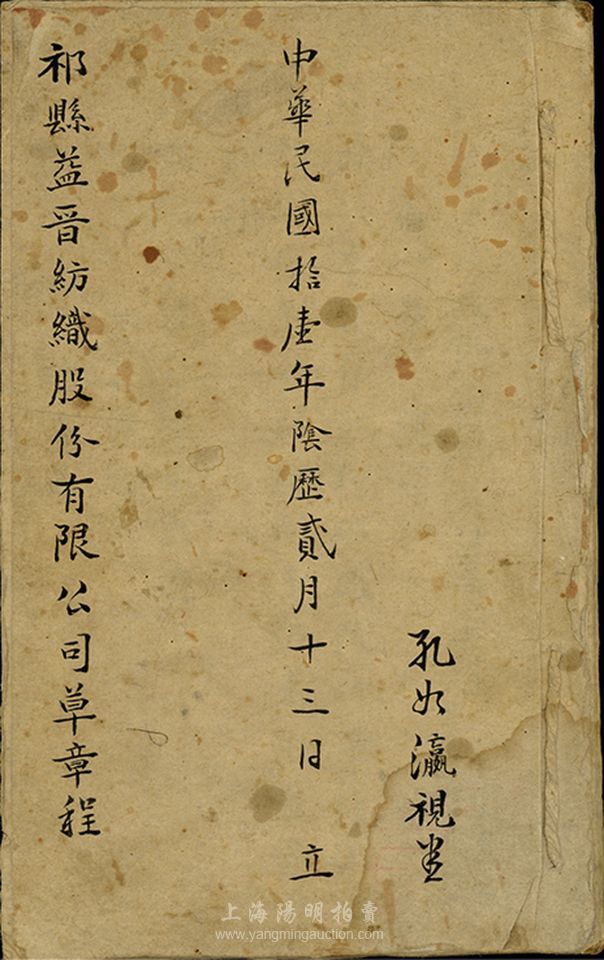 孔 瀛視
中華民國拾壹年陰歷貳月十三日 立
祁縣益晋紡織股份有限公司草章程
上海陽明拍賣
www.yangmingauction.com